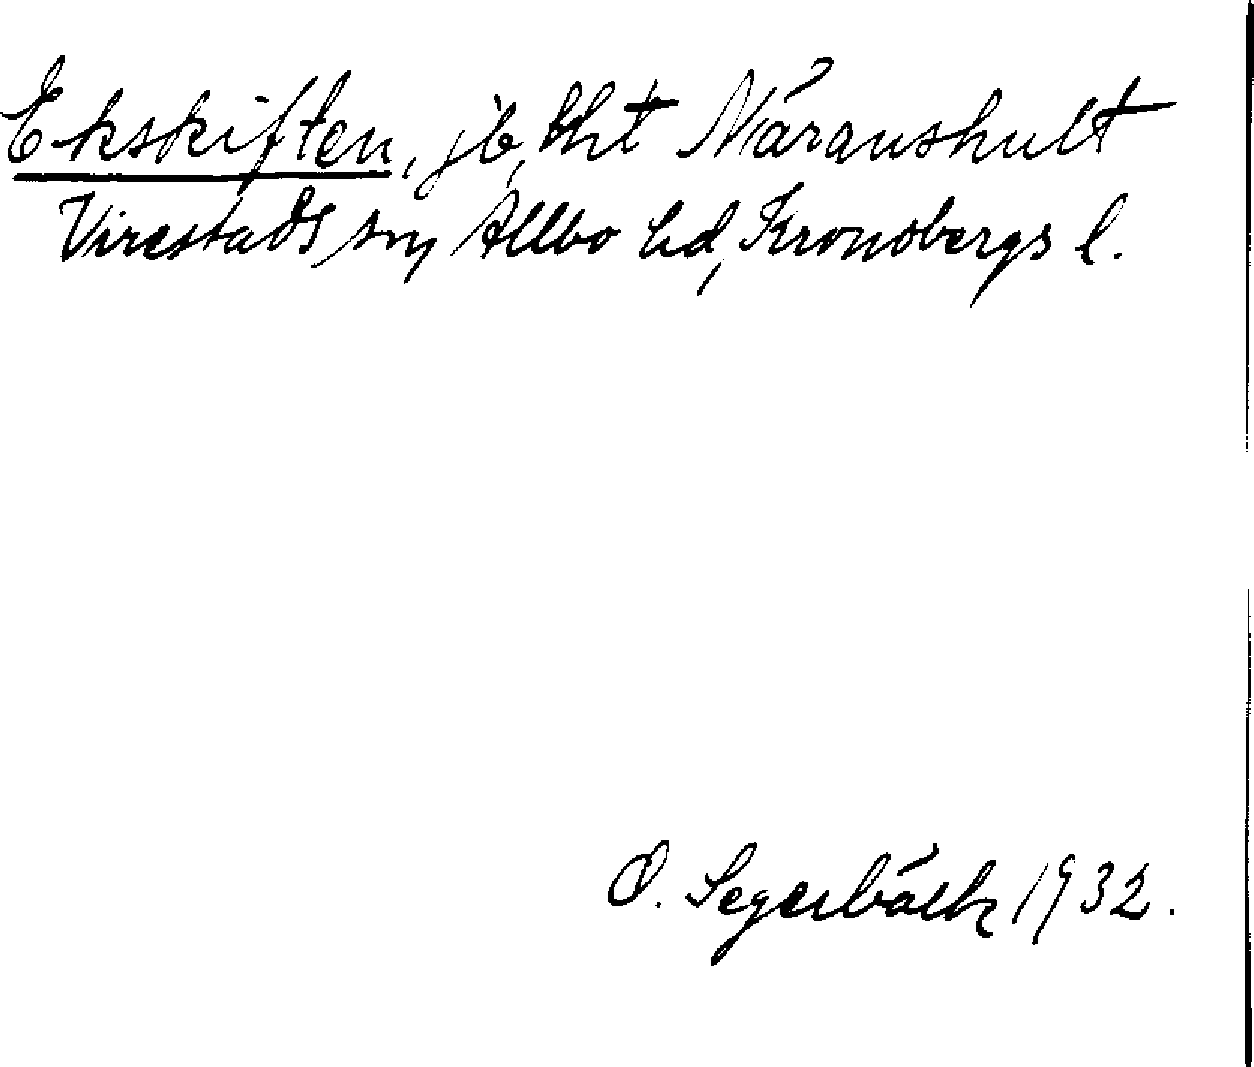 Ekskiften, jb, tht Näranshult
Virestads sn, Allbo hd, Kronobergs l.
O. Segerbäck 1932.